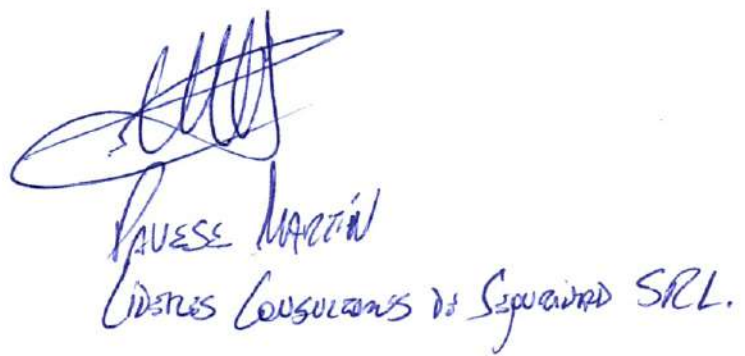 PAVESE MARTÍN
LIDERES CONSULTORES DE SEGURIDAD SRL.